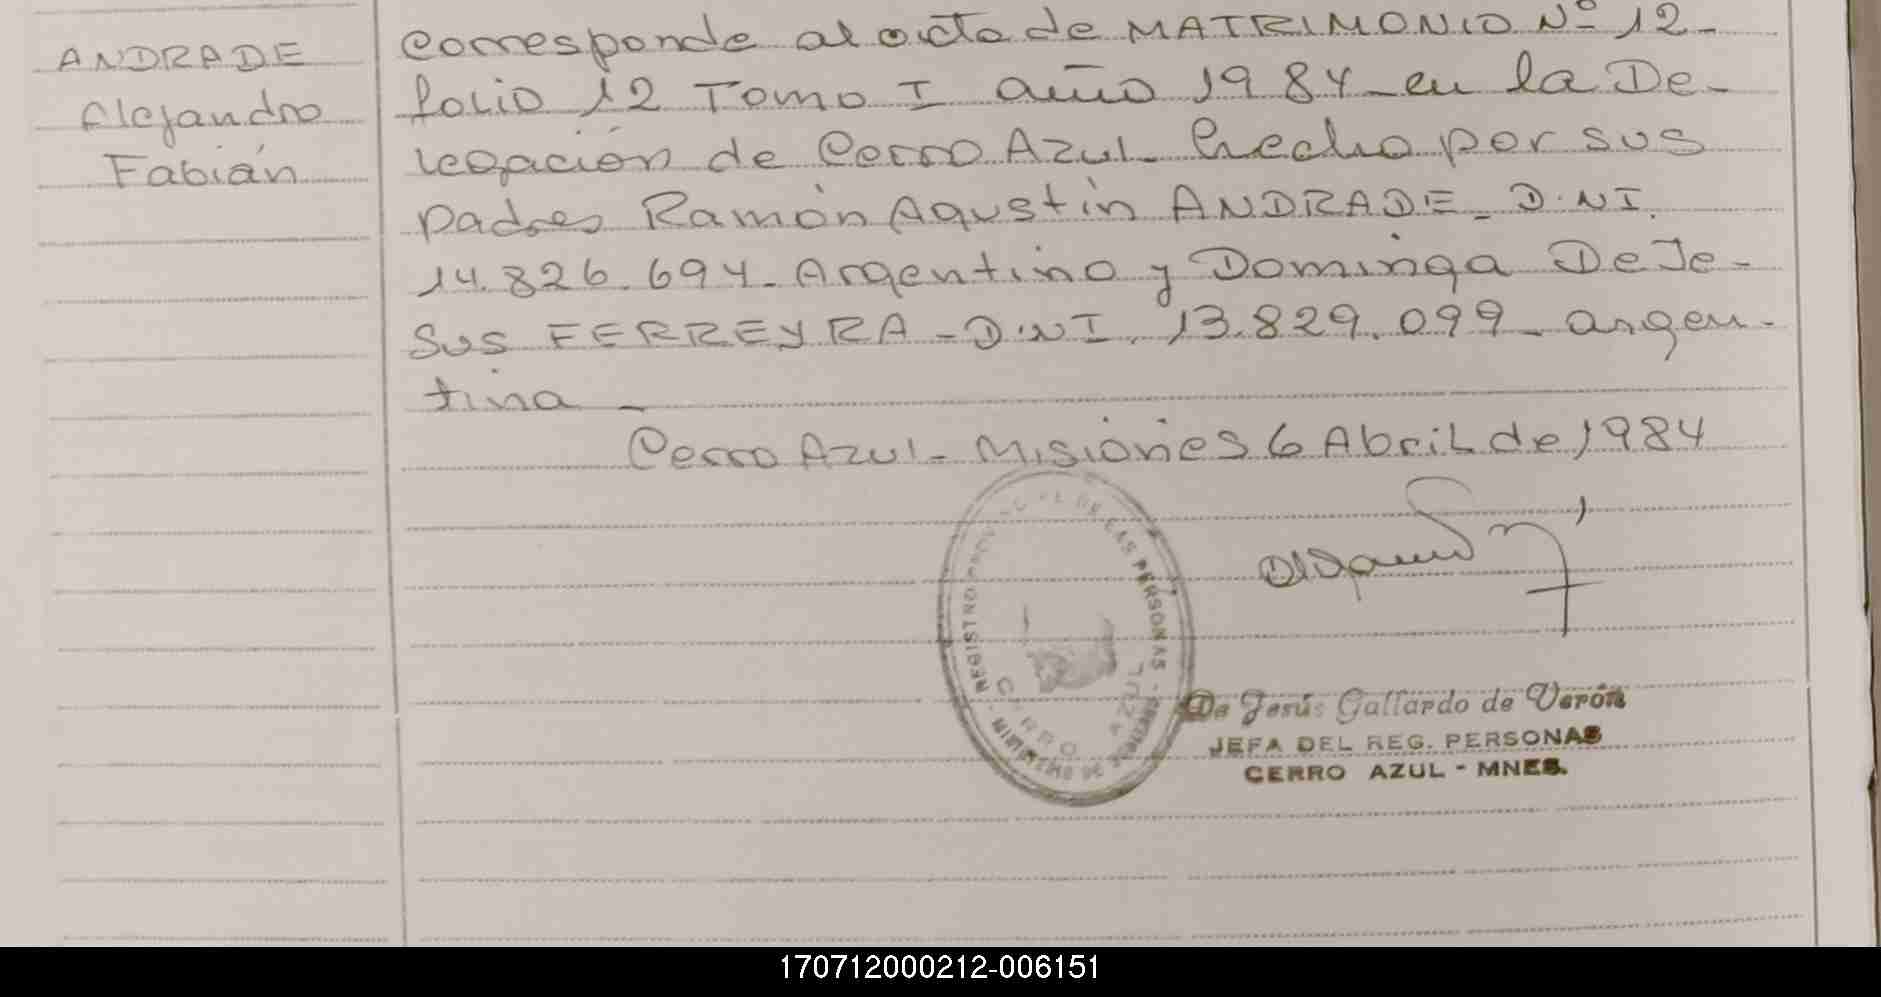 ANDRADE
Alejandro
Fabián
Corresponde al acta de MATRIMONIO Nº 12-
folio 12 Tomo I año 1984 - en la De-
legación de Cerro Azul - hecho por sus
padres Ramón Agustín ANDRADE - D.N.I.
14.826.694 - Argentino y Dominga De Je-
sus FERREYRA - D.N.I. 13.829.099 - argen-
tina -
Cerro Azul - Misiones 6 Abril de 1984
REGISTRO PROVINCIAL DE LAS PERSONAS - MINISTERIO DE
CERRO AZUL
De Jesús Gallardo de Verón
JEFA DEL REG. PERSONAS
CERRO AZUL - MNES.
170712000212-006151